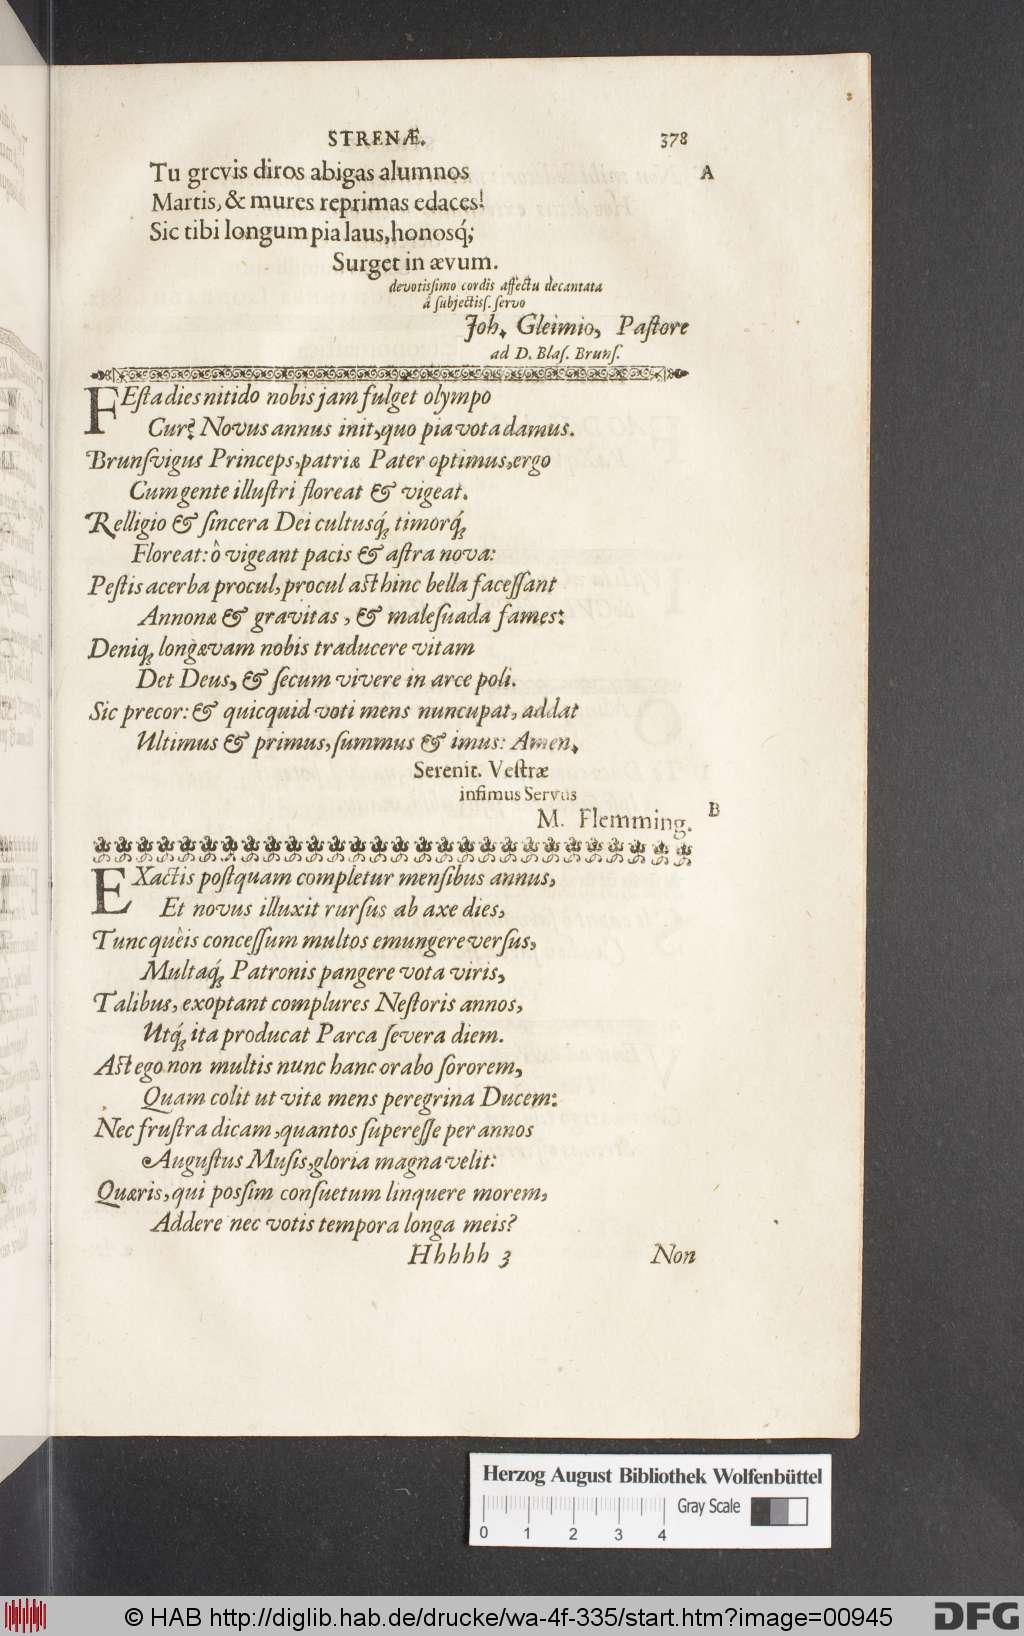 STRENÆ. 378
Tu grcvis diros abigas alumnos A
Martis, & mures reprimas edaces!
Sic tibi longum pia laus, honosq́;
Surget in ævum.
devotiſsimo cordis affectu decantata
â ſubjectiſs. ſervo
Joh. Gleimio, Paſtore
ad D. Blaſ. Brunſ.
FEſta dies nitido nobis jam fulget olympo
Cur? Novus annus init, quo pia vota damus.
Brunſvigus Princeps, patriæ Pater optimus, ergo
Cum gente illuſtri floreat & vigeat.
Relligio & ſincera Dei cultusq́; timorq́;
Floreat: ô vigeant pacis & aſtra nova:
Peſtis acerba procul, procul aſt hinc bella faceſſant
Annonæ & gravitas, & maleſuada fames:
Deniq; longævam nobis traducere vitam
Det Deus, & ſecum vivere in arce poli.
Sic precor: & quicquid voti mens nuncupat, addat
Ultimus & primus, ſummus & imus: Amen.
Serenit. Veſtræ
infimus Servus
M. Flemming. B
EXactis poſtquam completur menſibus annus,
Et novus illuxit rurſus ab axe dies,
Tunc quêis conceſſum multos emungere verſus,
Multaq́; Patronis pangere vota viris,
Talibus, exoptant complures Neſtoris annos,
Utq́; ita producat Parca ſevera diem.
Aſt ego non multis nunc hanc orabo ſororem,
Quam colit ut vitæ mens peregrina Ducem:
Nec fruſtra dicam, quantos ſupereſſe per annos
Auguſtus Muſis, gloria magna velit:
Quæris, qui poſsim conſuetum linquere morem,
Addere nec votis tempora longa meis?
Hhhhh 3 Non
Herzog August Bibliothek Wolfenbüttel
Gray Scale
0 1 2 3 4
© HAB http://diglib.hab.de/drucke/wa-4f-335/start.htm?image=00945 DFG